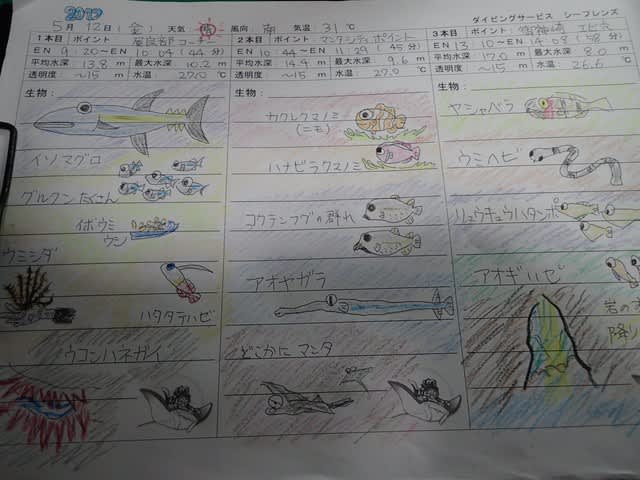 2017
ダイビングサービス シーフレンズ
5月 12日 (金) 天気 晴 風向 南 気温 31℃
1本目 ポイント 屋良部コーナー
EN 9:20～EN 10:04 (44分)
平均水深 13.8m 最大水深 10.2m
透明度 ～15m 水温: 27.0℃
生物:
イソマグロ
グルクンたくさん
イボウミ
ウシ
ウミシダ
ハタタテハゼ
ウコンハネガイ
2本目 ポイント マンタシティポイント
EN 10:44～EN 11:29 (45分)
平均水深 14.4m 最大水深 9.6m
透明度 ～15m 水温: 27.0℃
生物:
カクレクマノミ
(ニモ)
ハナビラクマノミ
コクテンフグの群れ
アオヤガラ
どこかに マンタ
3本目 ポイント 御神崎
EN 13:10～EN 14:08 (58分)
平均水深 17.0m 最大水深 8.0m
透明度 ～15m 水温: 26.6℃
生物:
ヤシャベラ
ウミヘビ
リュウキュウハタンポ
アオギハゼ
岩の
降り